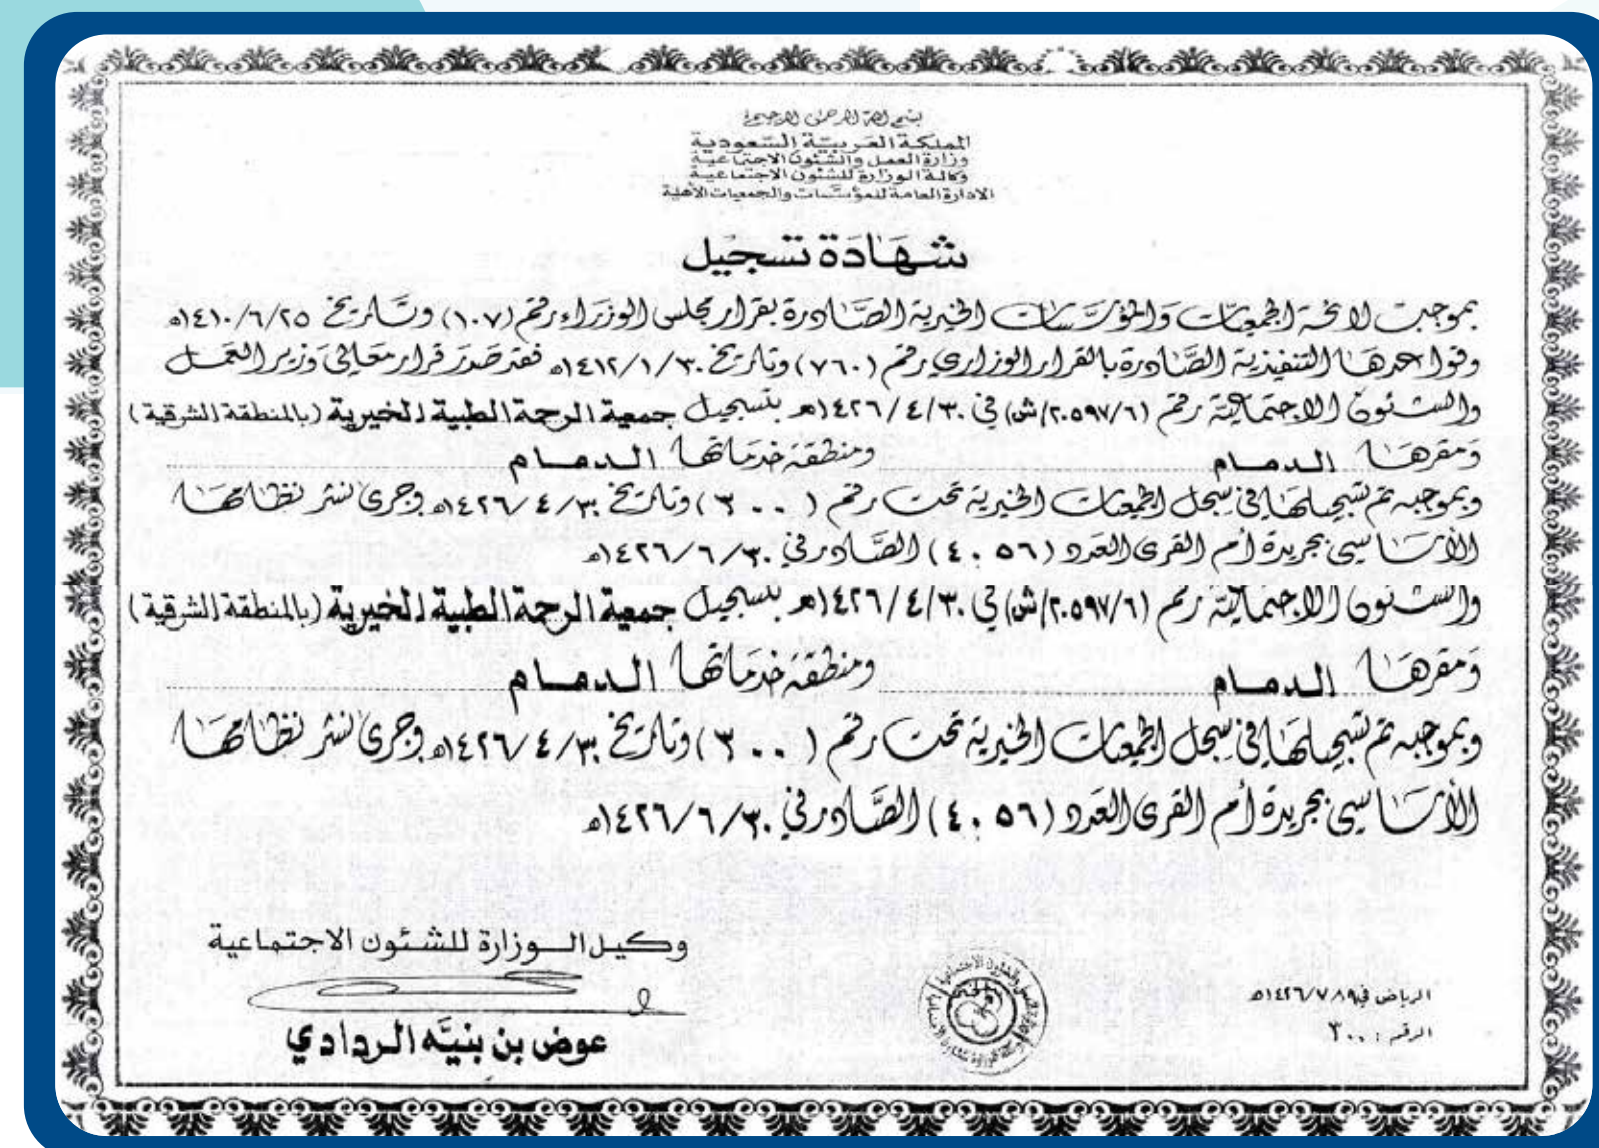 بسم الله الرحمن الرحيم
المملكة العربية السعودية
وزارة العمل والشئون الاجتماعية
وكالة الوزارة للشئون الاجتماعية
الادارة العامة للمؤسسات والجمعيات الأهلية
شهادة تسجيل
بموجب لائحة الجمعيات والمؤسسات الخيرية الصادرة بقرار مجلس الوزراء رقم (١٠٧) وتاريخ ١٤١٠/٦/٢٥هـ
وقواعدها التنفيذية الصادرة بالقرار الوزاري رقم (٧٦٠) وتاريخ ١٤١٢/١/٣٠هـ فقد صدر قرار معالي وزير العمل
والشئون الاجتماعية رقم (٢٠٥٩٧/٦/ش) في ١٤٢٦/٤/٣٠هـ بتسجيل جمعية الرحمة الطبية الخيرية (بالمنطقة الشرقية)
ومقرها الدمام ومنطقة خدماتها الدمام
وبموجبه تم تسجيلها في سجل الجمعيات الخيرية تحت رقم (٣٠٠) وتاريخ ١٤٢٦/٤/٣٠هـ وجرى نشر نظامها
الأساسي بجريدة أم القرى العدد (٤٠٥٦) الصادر في ١٤٢٦/٦/٣٠هـ
والشئون الاجتماعية رقم (٢٠٥٩٧/٦/ش) في ١٤٢٦/٤/٣٠هـ بتسجيل جمعية الرحمة الطبية الخيرية (بالمنطقة الشرقية)
ومقرها الدمام ومنطقة خدماتها الدمام
وبموجبه تم تسجيلها في سجل الجمعيات الخيرية تحت رقم (٣٠٠) وتاريخ ١٤٢٦/٤/٣٠هـ وجرى نشر نظامها
الأساسي بجريدة أم القرى العدد (٤٠٥٦) الصادر في ١٤٢٦/٦/٣٠هـ
وكيل الوزارة للشئون الاجتماعية
عوض بن بنيه الردادي
الرياض في
الرقم : ٣٠٠